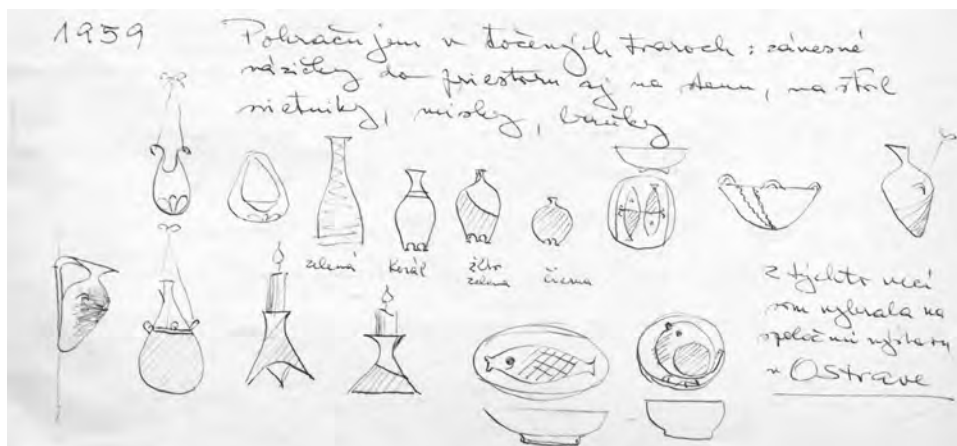 1959
Pokračujem v točených tvaroch: závesné
vázičky do priestoru aj na stenu, na stôl
svietniky, misky,
zelená
žlto zelená
čierna
Z týchto vecí
som vybrala na
spoločnú výstavu
v Ostrave